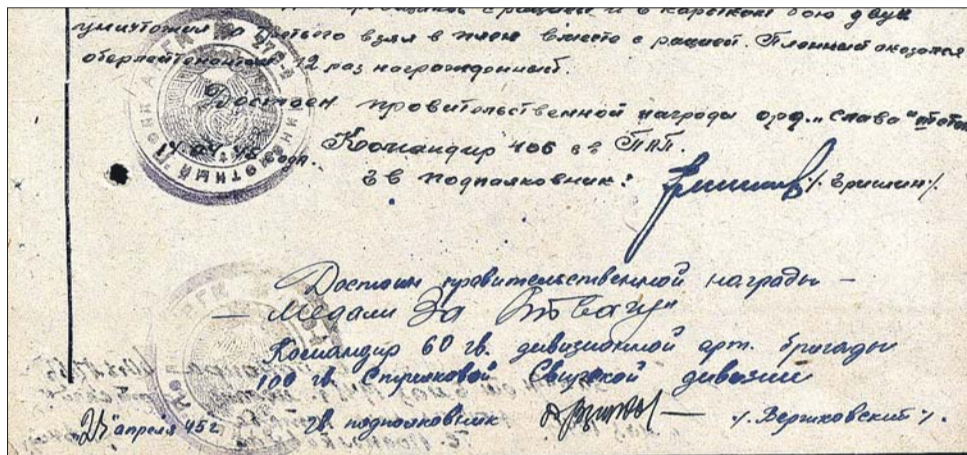 в коротком бою двух
уничтожил, а третьего взял в плен вместе с рацией. Пленный оказался
оберлейтенантом 12 раз награжденный.
Достоен правительственной награды орд. "Слава"
14.04.45 года. Командир 406
Гв подполковник: /. Гришин /.
Достоин правительственной награды –
– медали За Отвагу"
Командир 60 гв. дивизионной арт. бригады
100 гв. Стрелковой Свирской дивизии
"23" апреля 45 г гв. подполковник — /. Вериховский /.